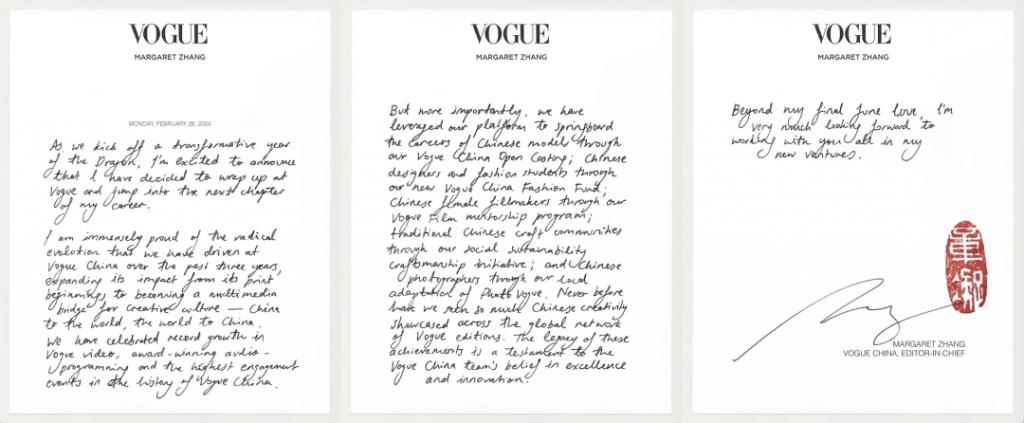 VOGUE
MARGARET ZHANG
MONDAY, FEBRUARY 26, 2024
As we kick off a transformative year
of the Dragon, I'm excited to announce
that I have decided to wrap up at
Vogue and jump into the next chapter
of my career.
I am immensely proud of the radical
evolution that we have driven at
Vogue China over the past three years,
expanding its impact from its print
beginnings to becoming a multimedia
bridge for creative culture — China
to the world, the world to China.
We have celebrated record growth in
Vogue video, award-winning audio-
programming and the highest engagement
events in the history of Vogue China.
VOGUE
MARGARET ZHANG
But more importantly, we have
leveraged our platform to springboard
the careers of Chinese models through
our Vogue China Open Casting; Chinese
designers and fashion students through
our new Vogue China Fashion Fund;
Chinese female filmmakers through our
Vogue Film mentorship program;
traditional Chinese craft communities
through our social sustainability
craftsmanship initiative; and Chinese
photographers through our local
adaptation of Photo Vogue. Never before
have we seen so much Chinese creativity
showcased across the global network
of Vogue editions. The legacy of these
achievements is a testament to the
Vogue China team's belief in excellence
and innovation.
VOGUE
MARGARET ZHANG
Beyond my final June issue, I'm
very much looking forward to
working with you all in my
new ventures.
MARGARET ZHANG
VOGUE CHINA, EDITOR-IN-CHIEF